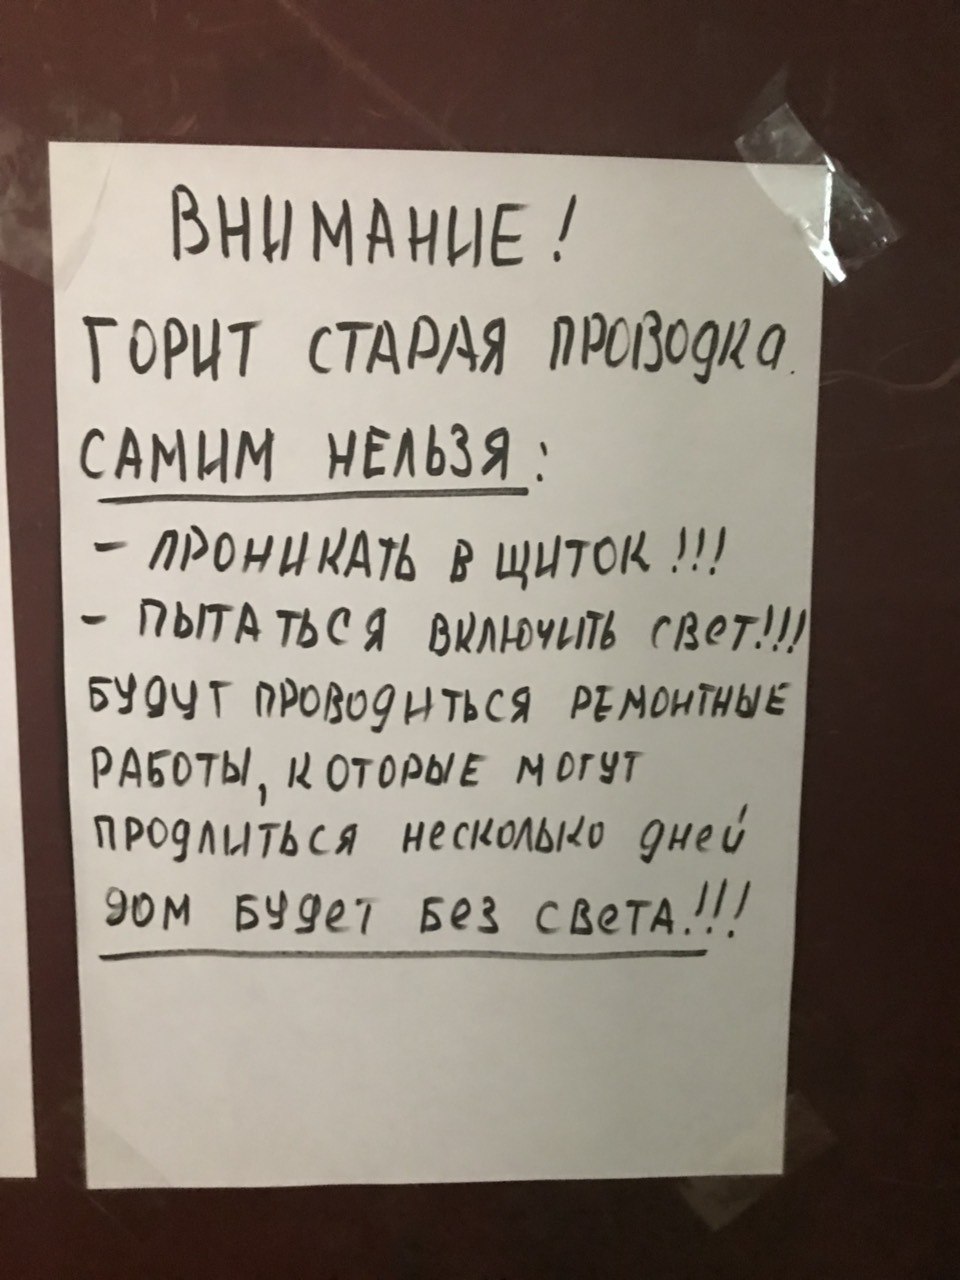 ВНИМАНИЕ!
ГОРИТ СТАРАЯ ПРОВОДКА.
САМИМ НЕЛЬЗЯ:
- ПРОНИКАТЬ В ЩИТОК!!!
- ПЫТАТЬСЯ ВКЛЮЧИТЬ СВЕТ!!!
БУДУТ ПРОВОДИТЬСЯ РЕМОНТНЫЕ
РАБОТЫ, КОТОРЫЕ МОГУТ
ПРОДЛИТЬСЯ НЕСКОЛЬКО ДНЕЙ
ДОМ БУДЕТ БЕЗ СВЕТА!!!